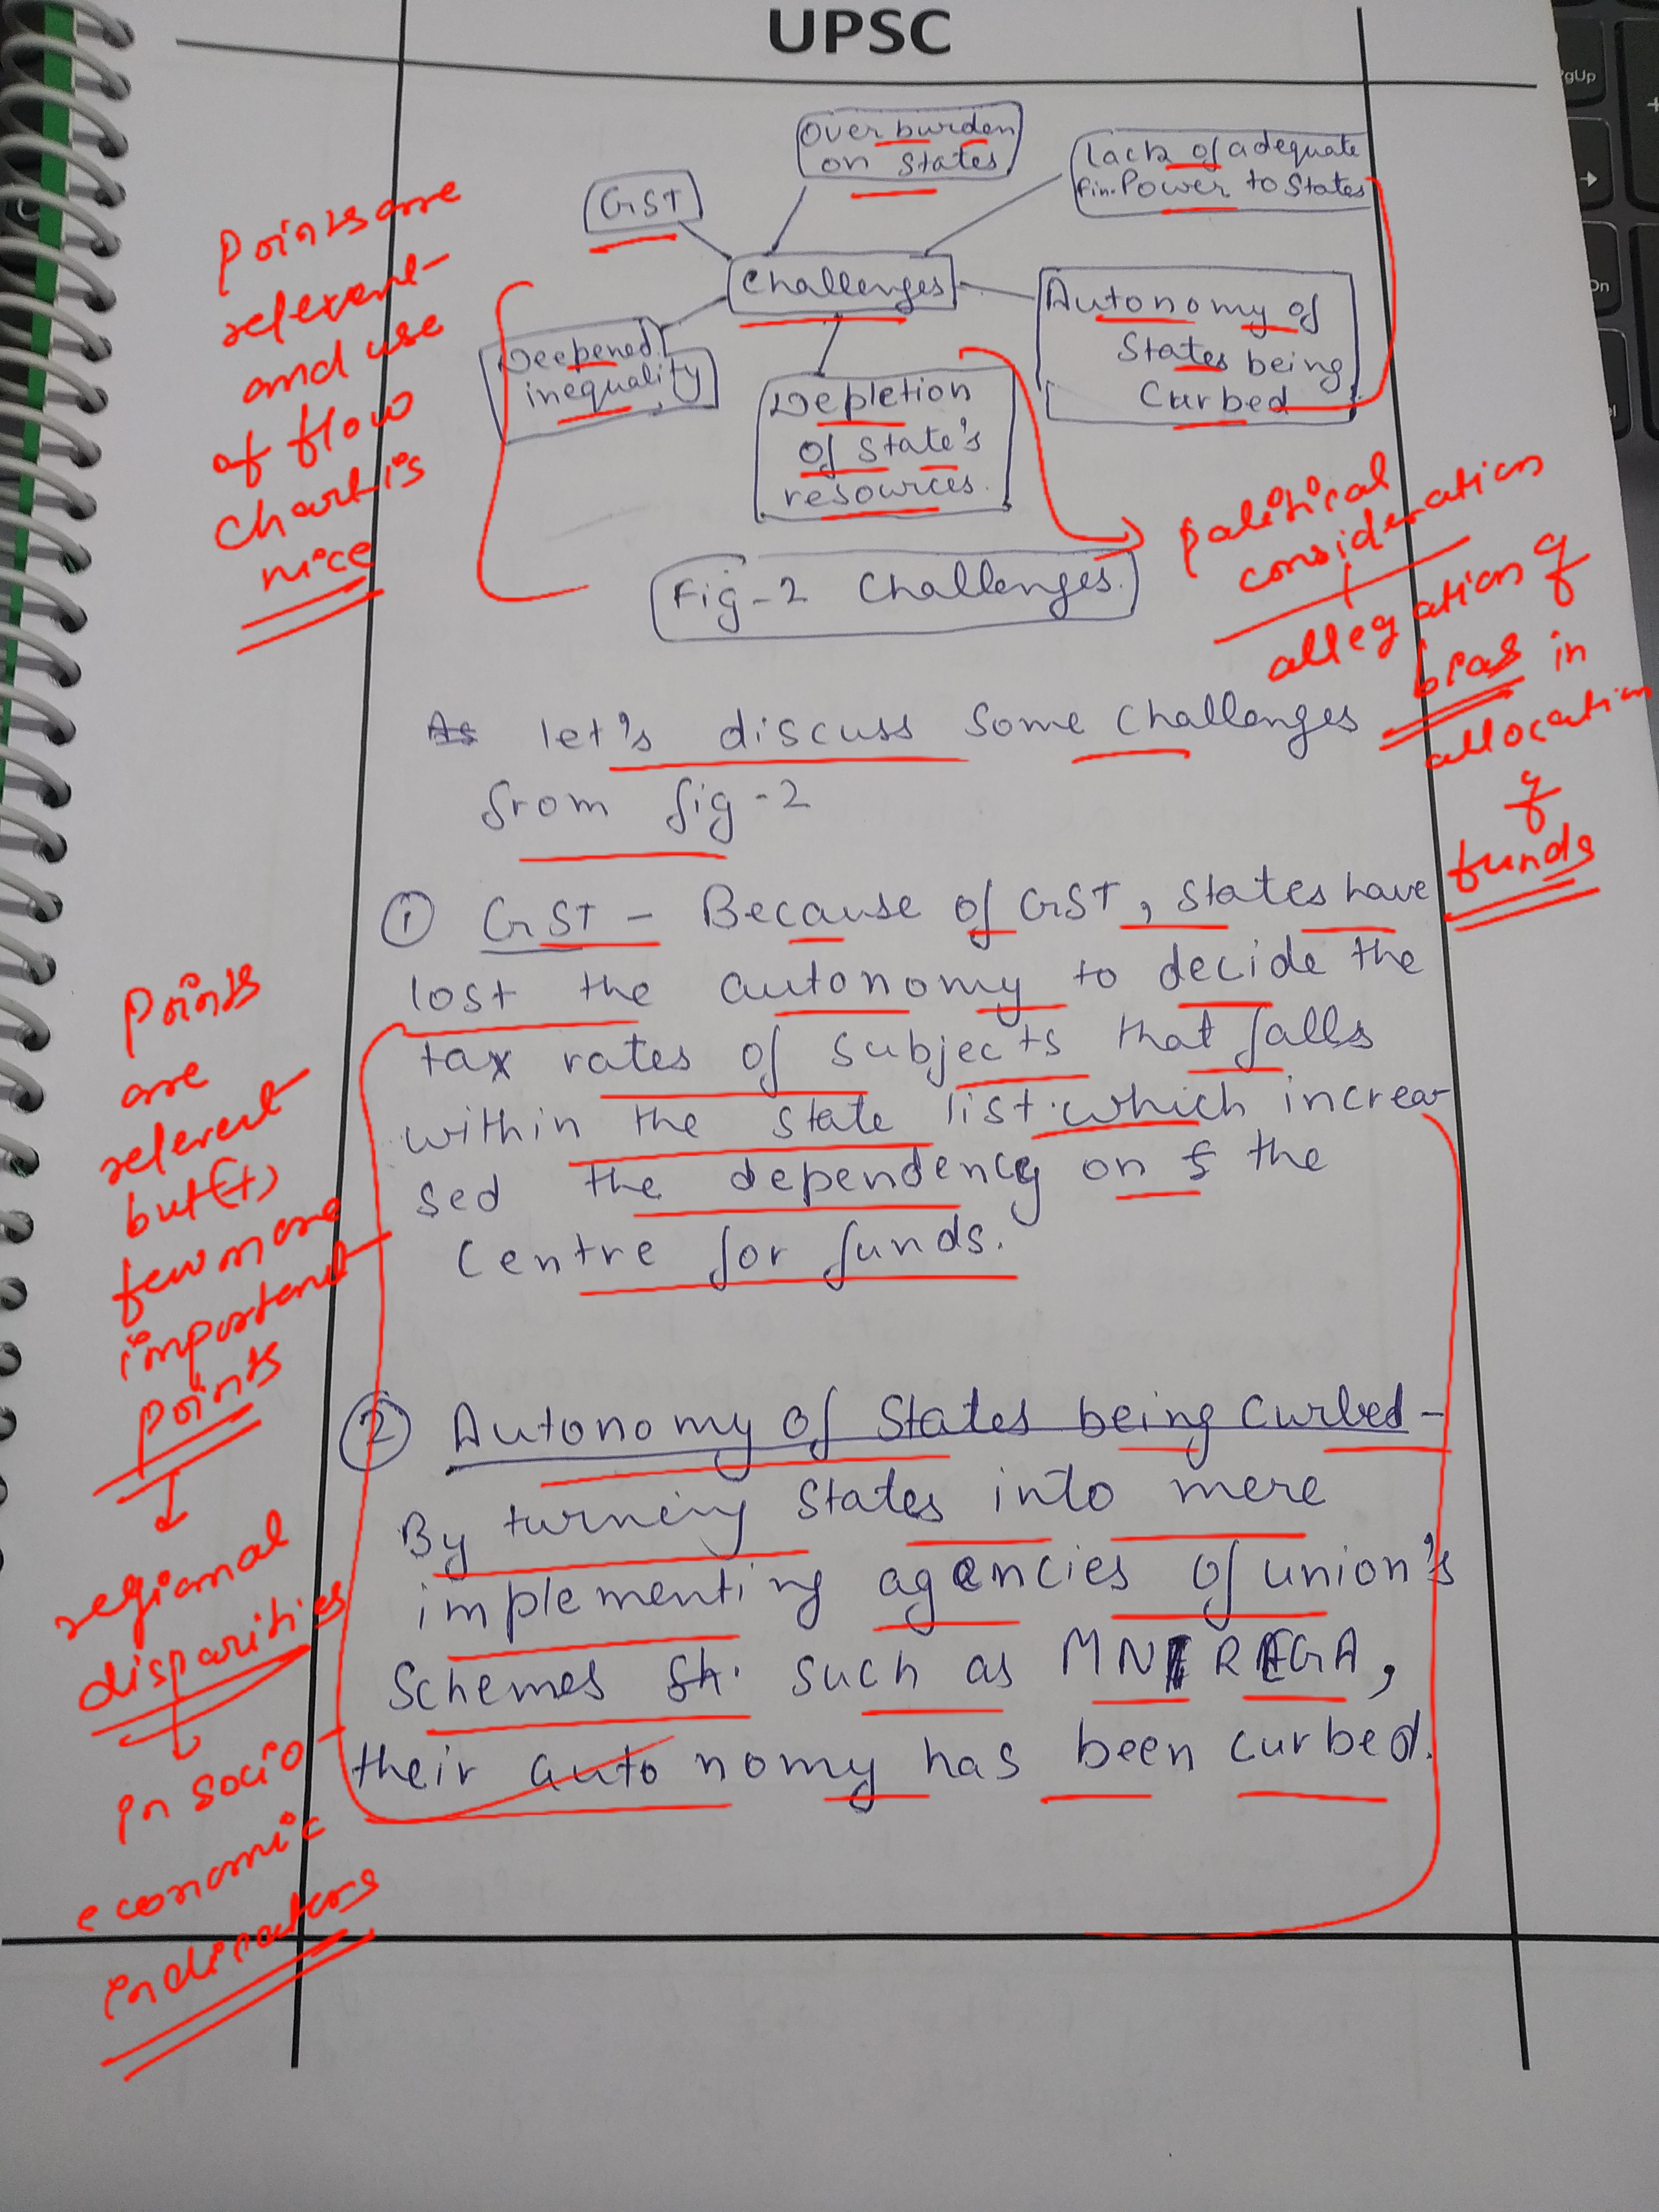 UPSC
Over burden
on States
Lack of adequate
fin. Power to States
GST
Challenges
Autonomy of
States being
Curbed
Deepened
inequality
Depletion
of state's
resources.
Fig-2 Challenges.
Points are
relevent
and use
of flow
chart is
nice
political
consideration
allegation of
bias in
allocation
of
funds
As let's discuss some challenges
from fig-2
① GST - Because of GST, States have
lost the autonomy to decide the
tax rates of subjects that falls
within the state list. which increa
sed the dependency on the
Centre for funds.
Points
are
relevent
but (+)
few more
important
points
↓
regional
disparities
↓
in socio
economic
indicators
② Autonomy of States being Curbed -
By turning States into mere
implementing agencies of union's
Schemes such as MNREGA,
their autonomy has been curbed.
PgUp